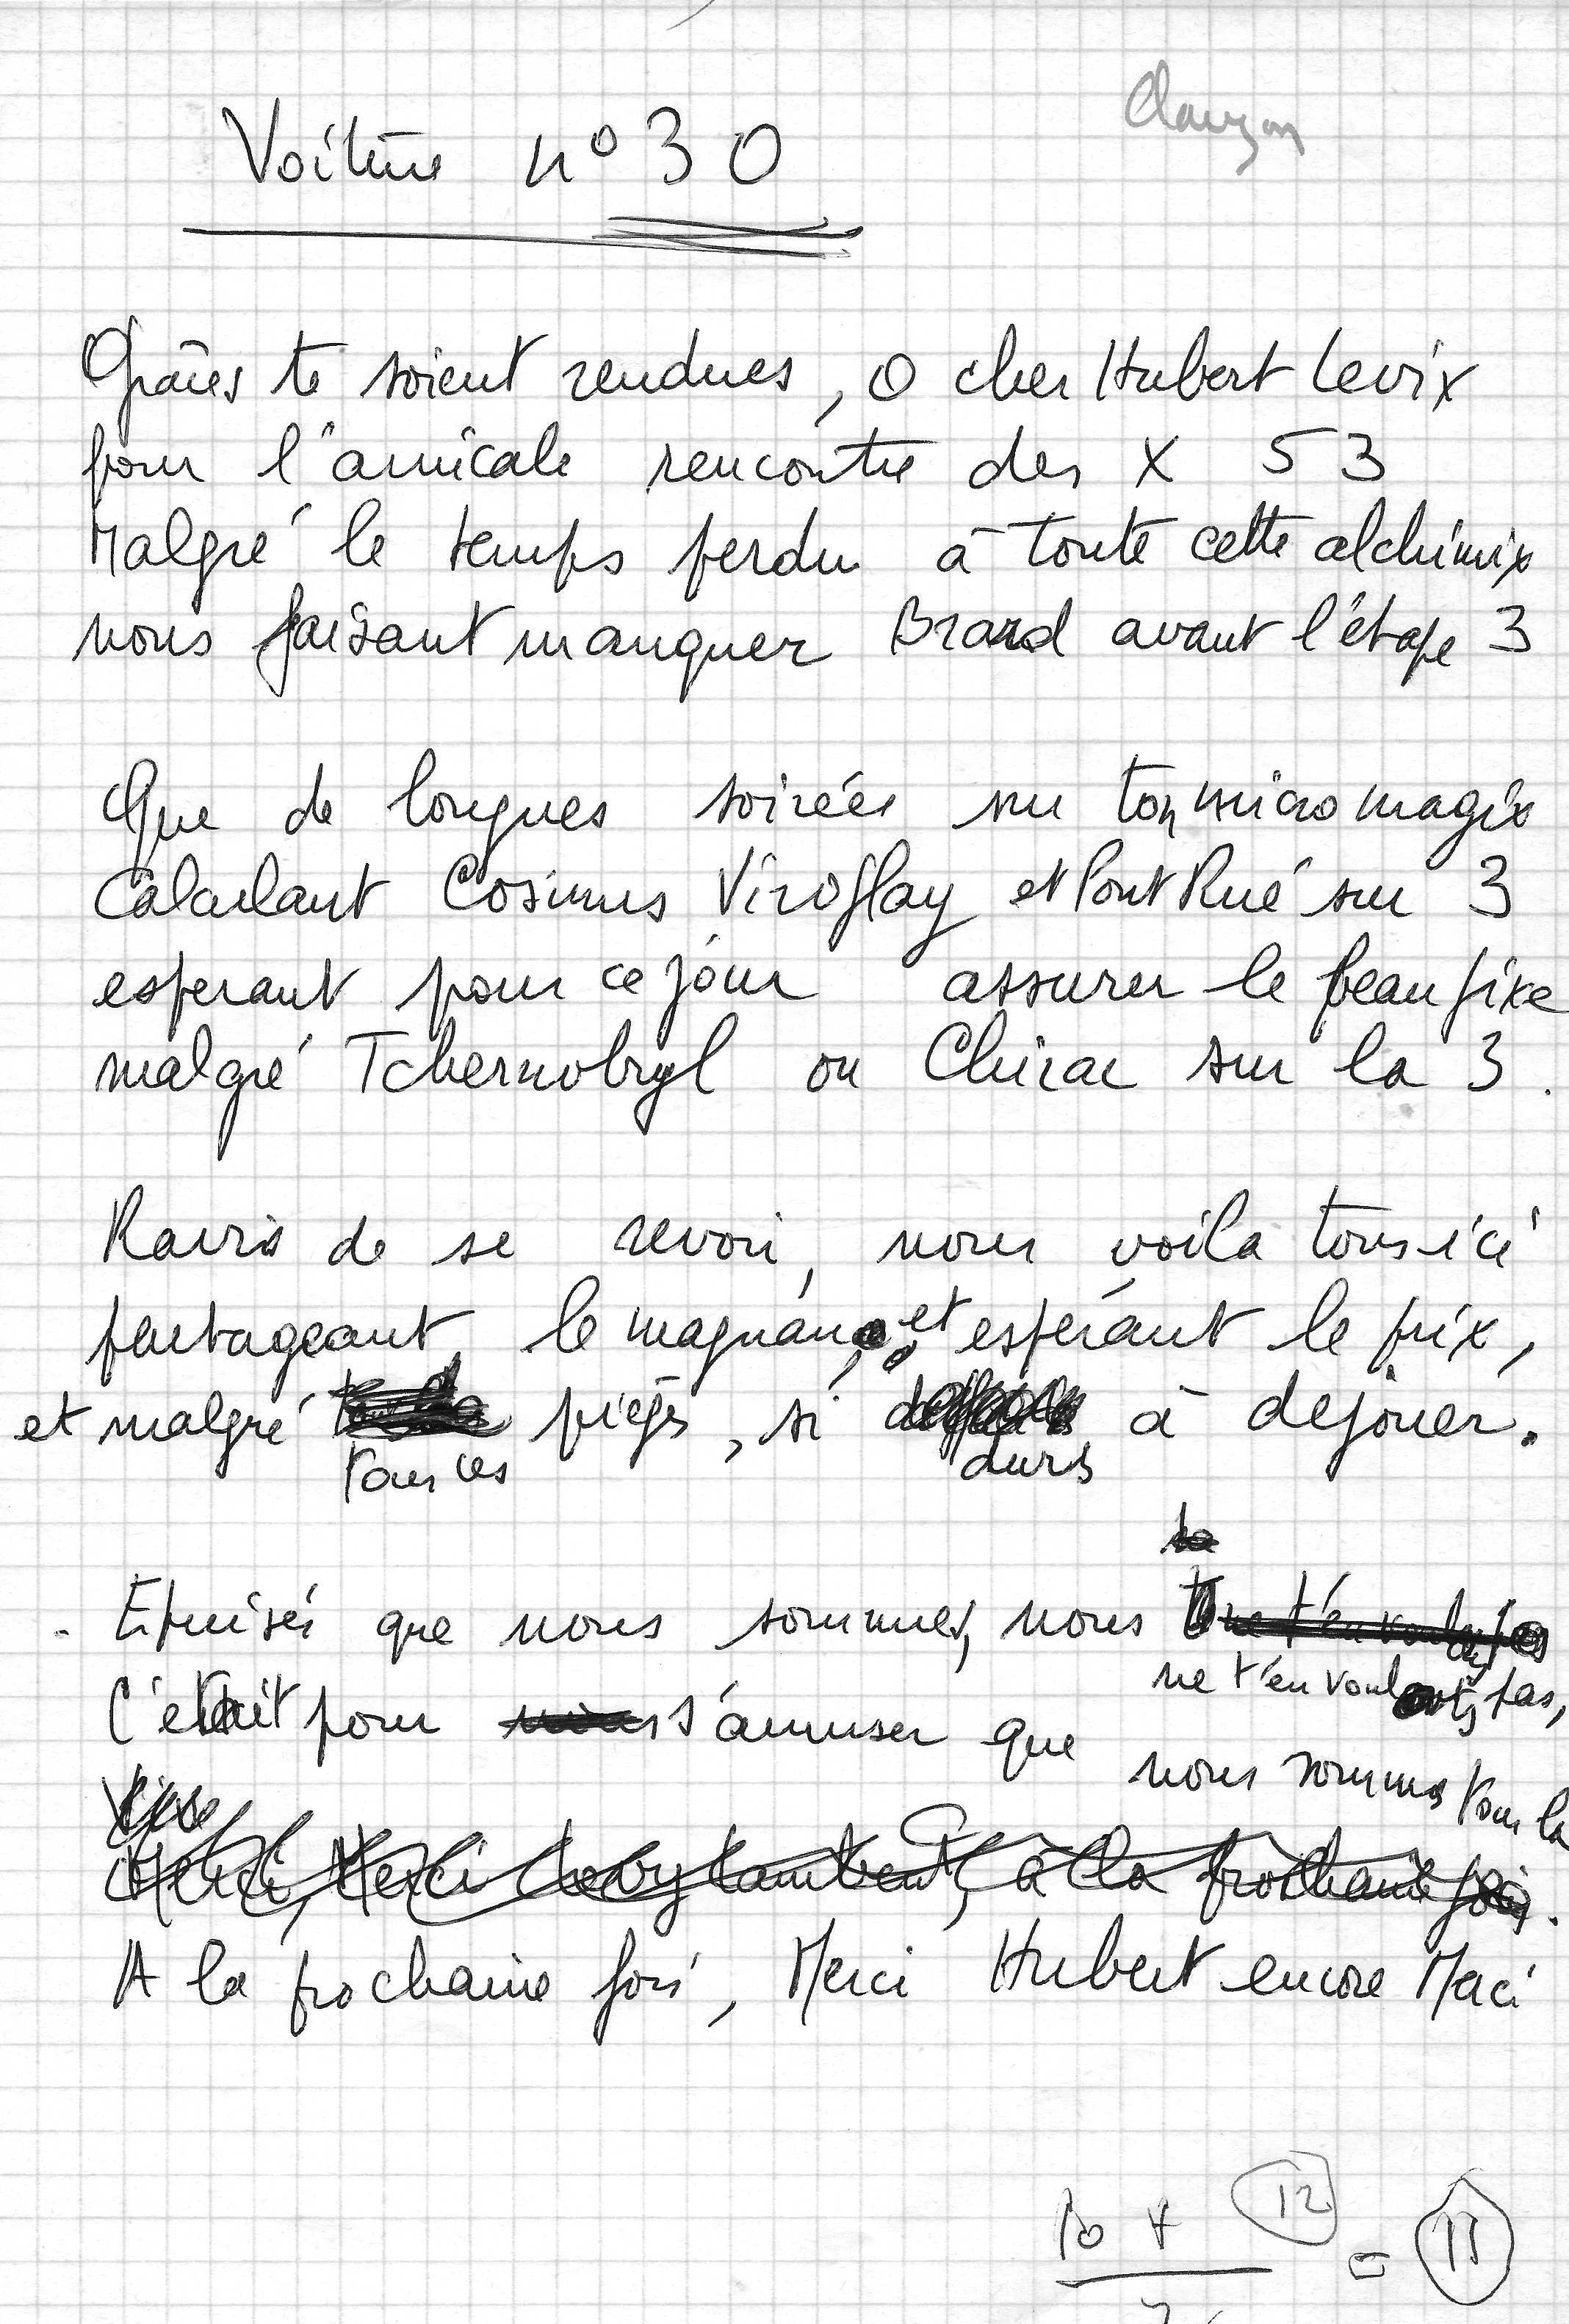 Clauzon
Voiture n° 30
Grâces te soient rendues, O cher Hubert Levix
pour l'amicale rencontre des X 53
Malgré le temps perdu à toute cette alchimix
nous faisant manquer Brard avant l'étape 3
Que de longues soirées sur ton micro magix
Calculant Cosinus Viroflay et Pont Rué sur 3
esperant pour ce jour assurer le beau fixe
malgré Tchernobryl ou Chirac sur la 3.
Ravis de se revoir, nous voila tous ici
partageant le magnan, et espérant le prix,
et malgré tous ces pièges, si durs à dejouer.
Epuisés que nous sommes, nous
ne t'en voulons pas,
C'était pour s'amuser que nous sommes tous la
Merci, Merci à la prochaine fois.
A la prochaine fois, Merci Hubert encore Merci
10 + 12 = 11
2